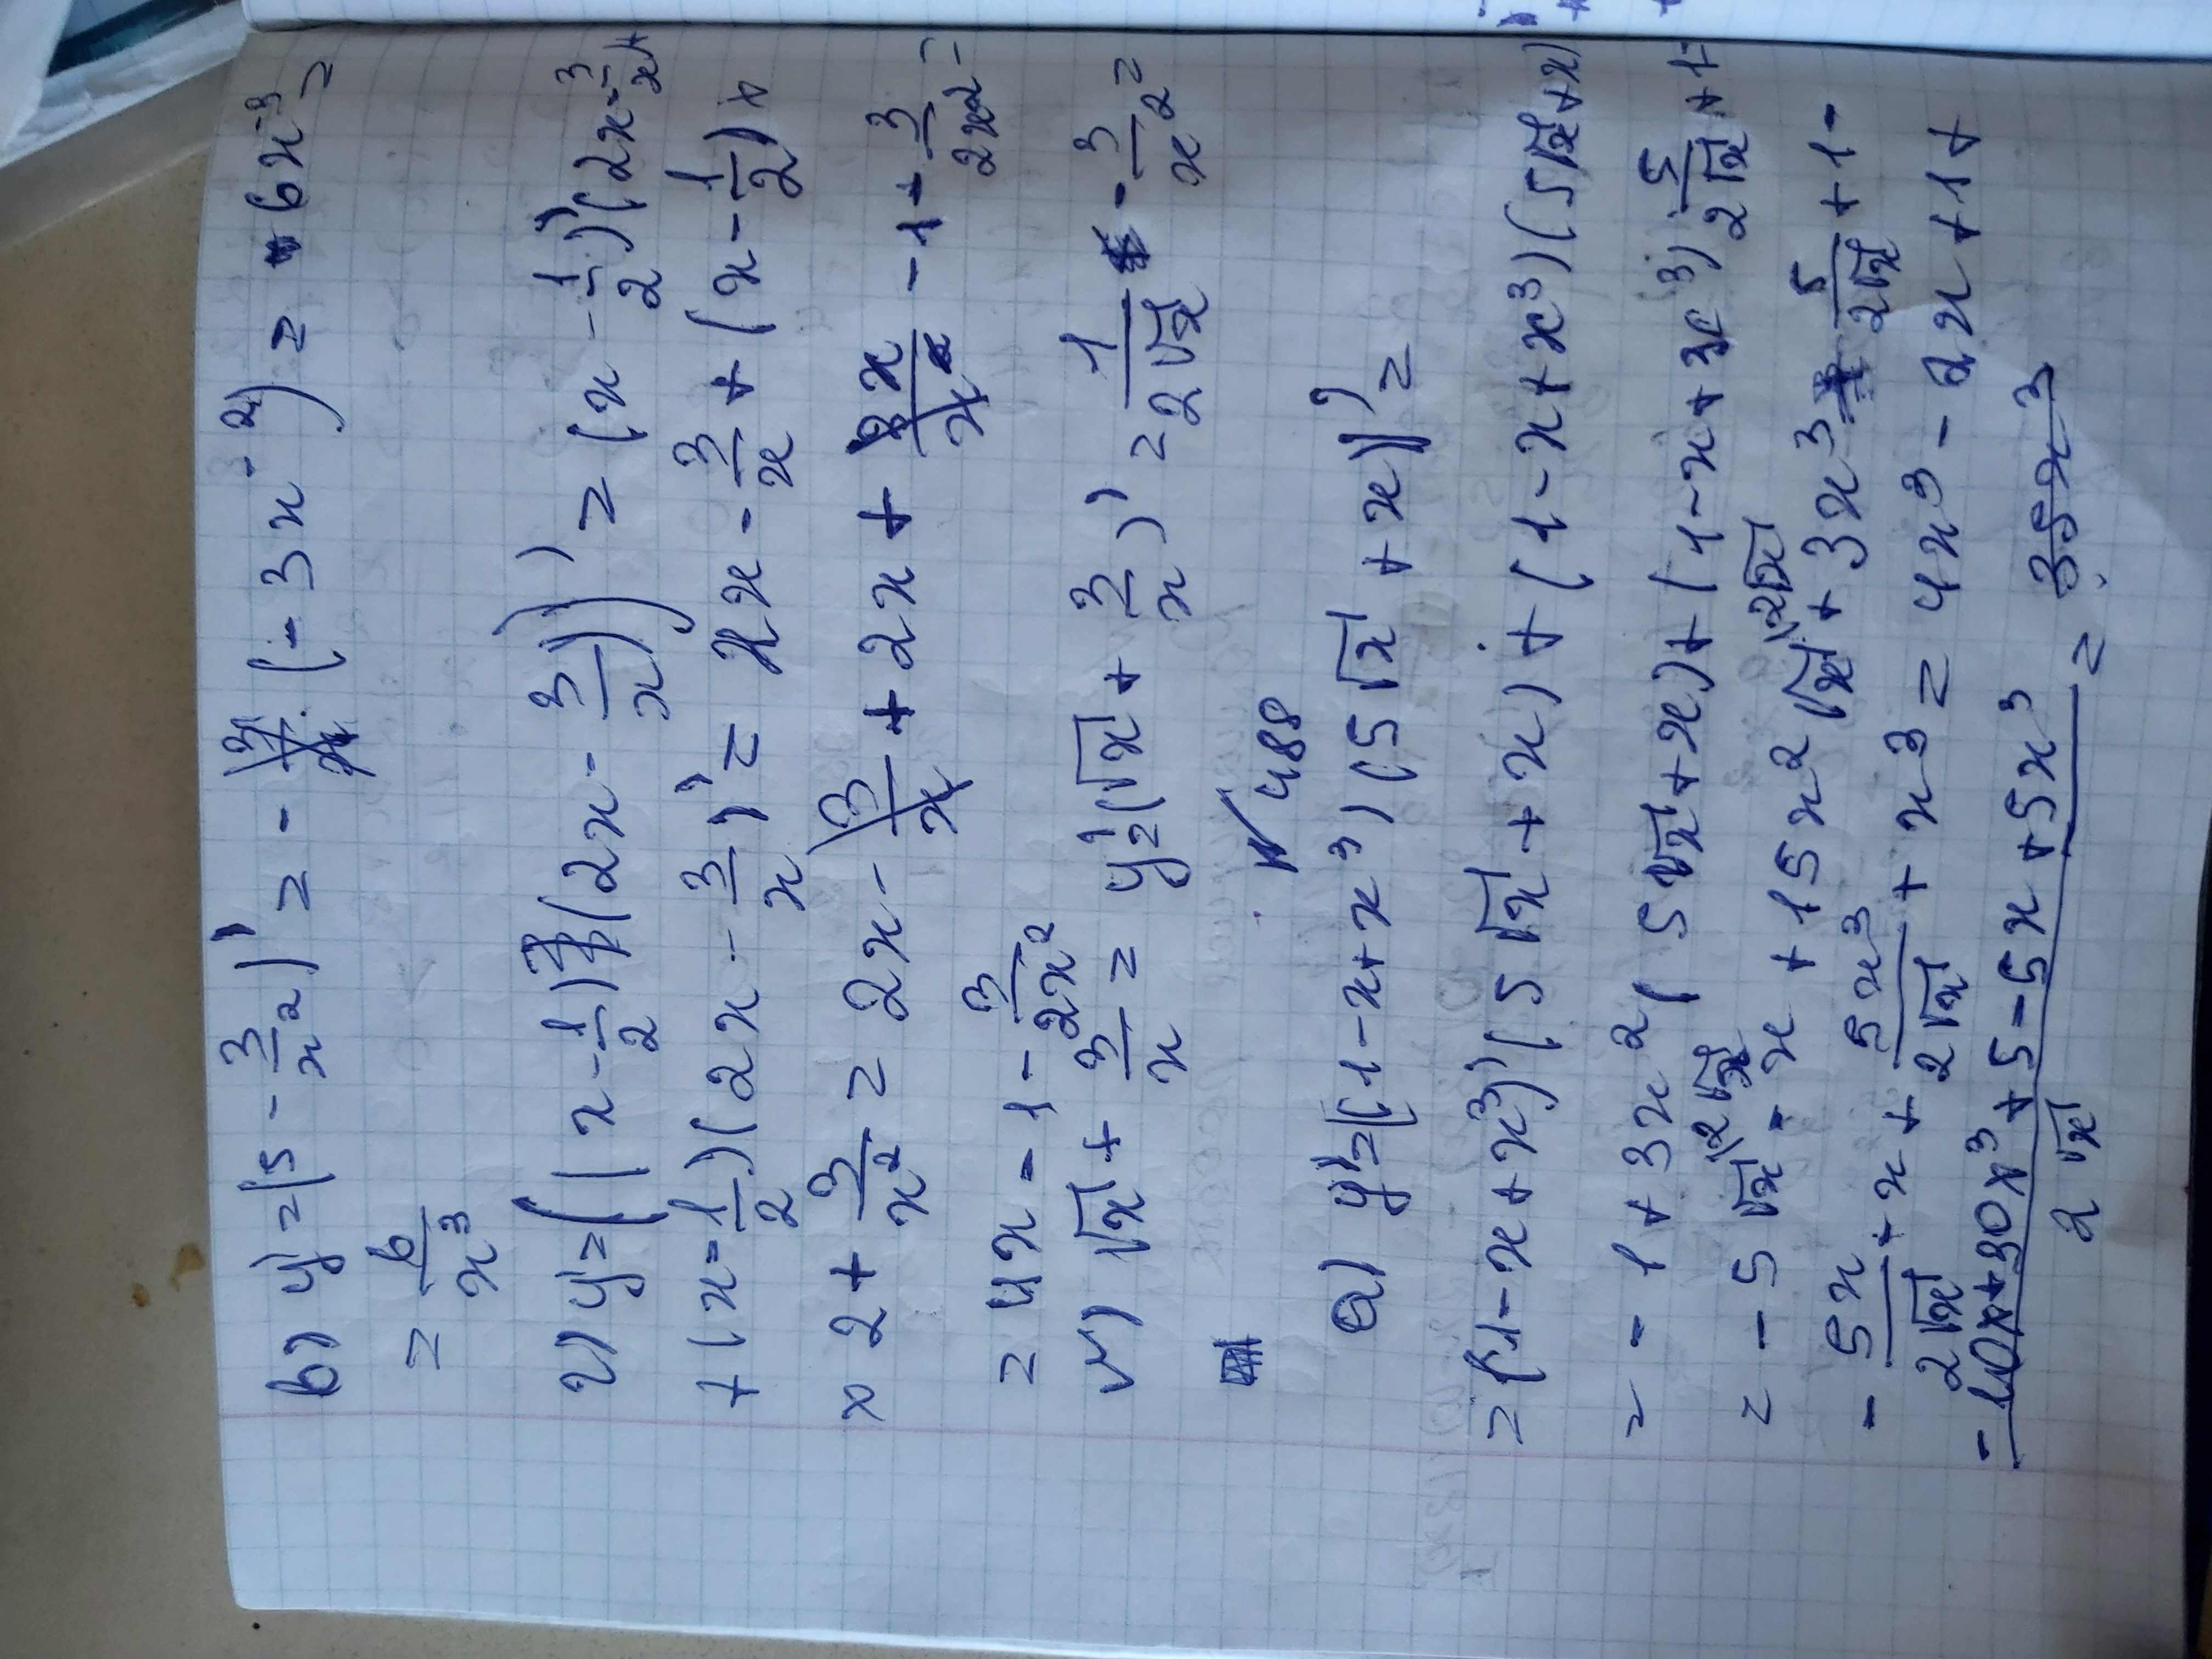 в) y' = (5 - 3/x²)' = - (-3x⁻²) = 6x⁻³ =
= 6/x³
г) y' = ((x - 1/2)(2x - 3/x))' = (x - 1/2)'(2x - 3/x) +
+ (x - 1/2)(2x - 3/x)' = 2x - 3/x + (x - 1/2) ×
× 2 + 3/x² = 2x - 3/x + 2x + 3x/x - 1 - 3/2x² =
= 4x - 1 - 3/2x²
√x + 3/x = y' = (√x + 3/x)' = 1/2√x - 3/x² =
№ 488
а) y' = ((1 - x + x³)(5√x + x))' =
= (1 - x + x³)'(5√x + x) + (1 - x + x³)(5√x + x)'
= -1 + 3x²(5√x + x) + (1 - x + x³) 5/2√x + 1 =
= -5√x - x + 15x²√x + 3x³ 5/2√x + 1 -
- 5x/2√x - x + 5x³/2√x + x³ = 4x³ - 2x + 1 +
-10x + 30x³ + 5 - 5x + 5x³/2√x = 35x³